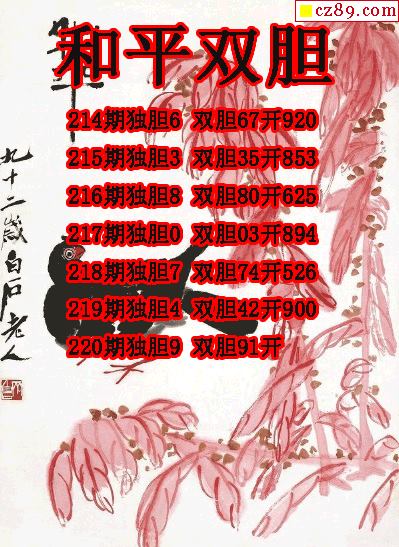 cz89.com
和平双胆
214期独胆6 双胆67开920
215期独胆3 双胆35开853
216期独胆8 双胆80开625
217期独胆0 双胆03开894
218期独胆7 双胆74开526
219期独胆4 双胆42开900
220期独胆9 双胆91开
九十二歲白石老人